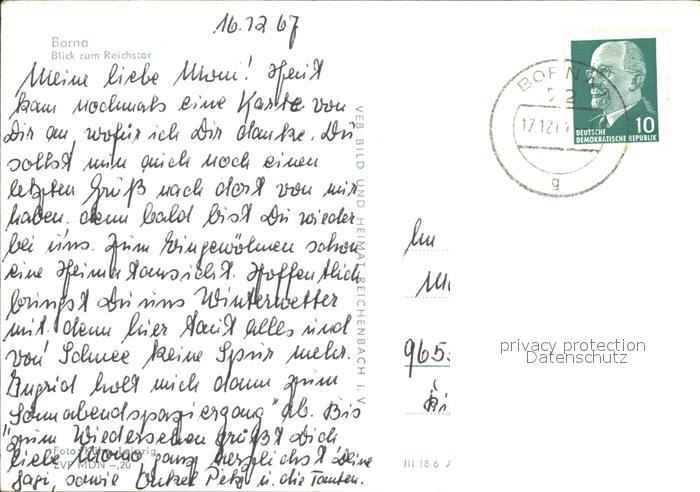 16.12.67
Borna
Blick zum Reichstor
Meine liebe Momi! Heut
kam nochmals eine Karte von
Dir an, wofür ich Dir danke. Du
sollst nun auch noch einen
letzten Gruß nach dort von mir
haben, denn bald bist Du wieder
bei uns. Zum Eingewöhnen schon
eine Heimatansicht. Hoffentlich
bringst Du uns Winterwetter
mit, denn hier taut alles und
von Schnee keine Spur mehr.
Ingrid holt mich dann zum
"Sonnabendspaziergang" ab. Bis
zum Wiedersehen grüßt Dich
liebe Momo ganz herzlichst Deine
Gagi, sowie Onkel Petz u. die Tanten.
Foto: Leipzig
ZVP MDN -,20
VEB BILD UND HEIMAT REICHENBACH i. V.
BORNA
72
17.12.67
g
DEUTSCHE
DEMOKRATISCHE REPUBLIK
10
965
privacy protection
Datenschutz
III 18 6